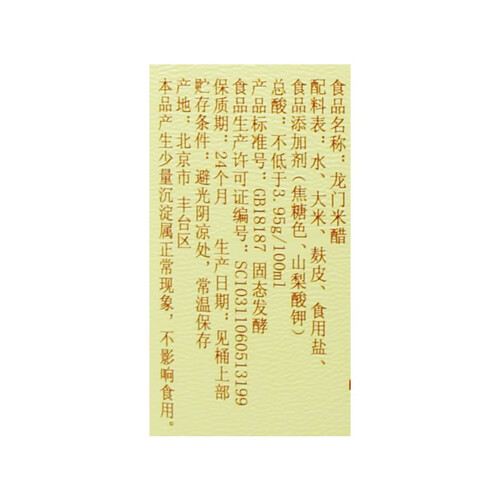 食品名称：龙门米醋
配料表：水、大米、麸皮、食用盐、
食品添加剂（焦糖色、山梨酸钾）
总酸：不低于3.95g/100ml
产品标准号：GB18187 固态发酵
食品生产许可证编号：SC10311060513199
保质期：24个月 生产日期：见桶上部
贮存条件：避光阴凉处，常温保存
产地：北京市 丰台区
本品产生少量沉淀属正常现象，不影响食用。